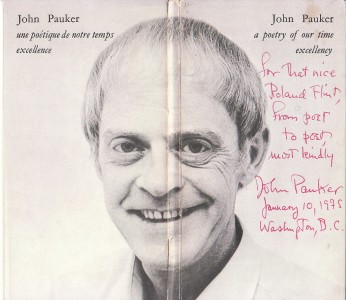 John Pauker
une poétique de notre temps
excellence
John Pauker
a poetry of our time
excellency
For that nice
Roland Flint,
from poet
to poet,
most kindly
John Pauker
January 10, 1975
Washington, D.C.